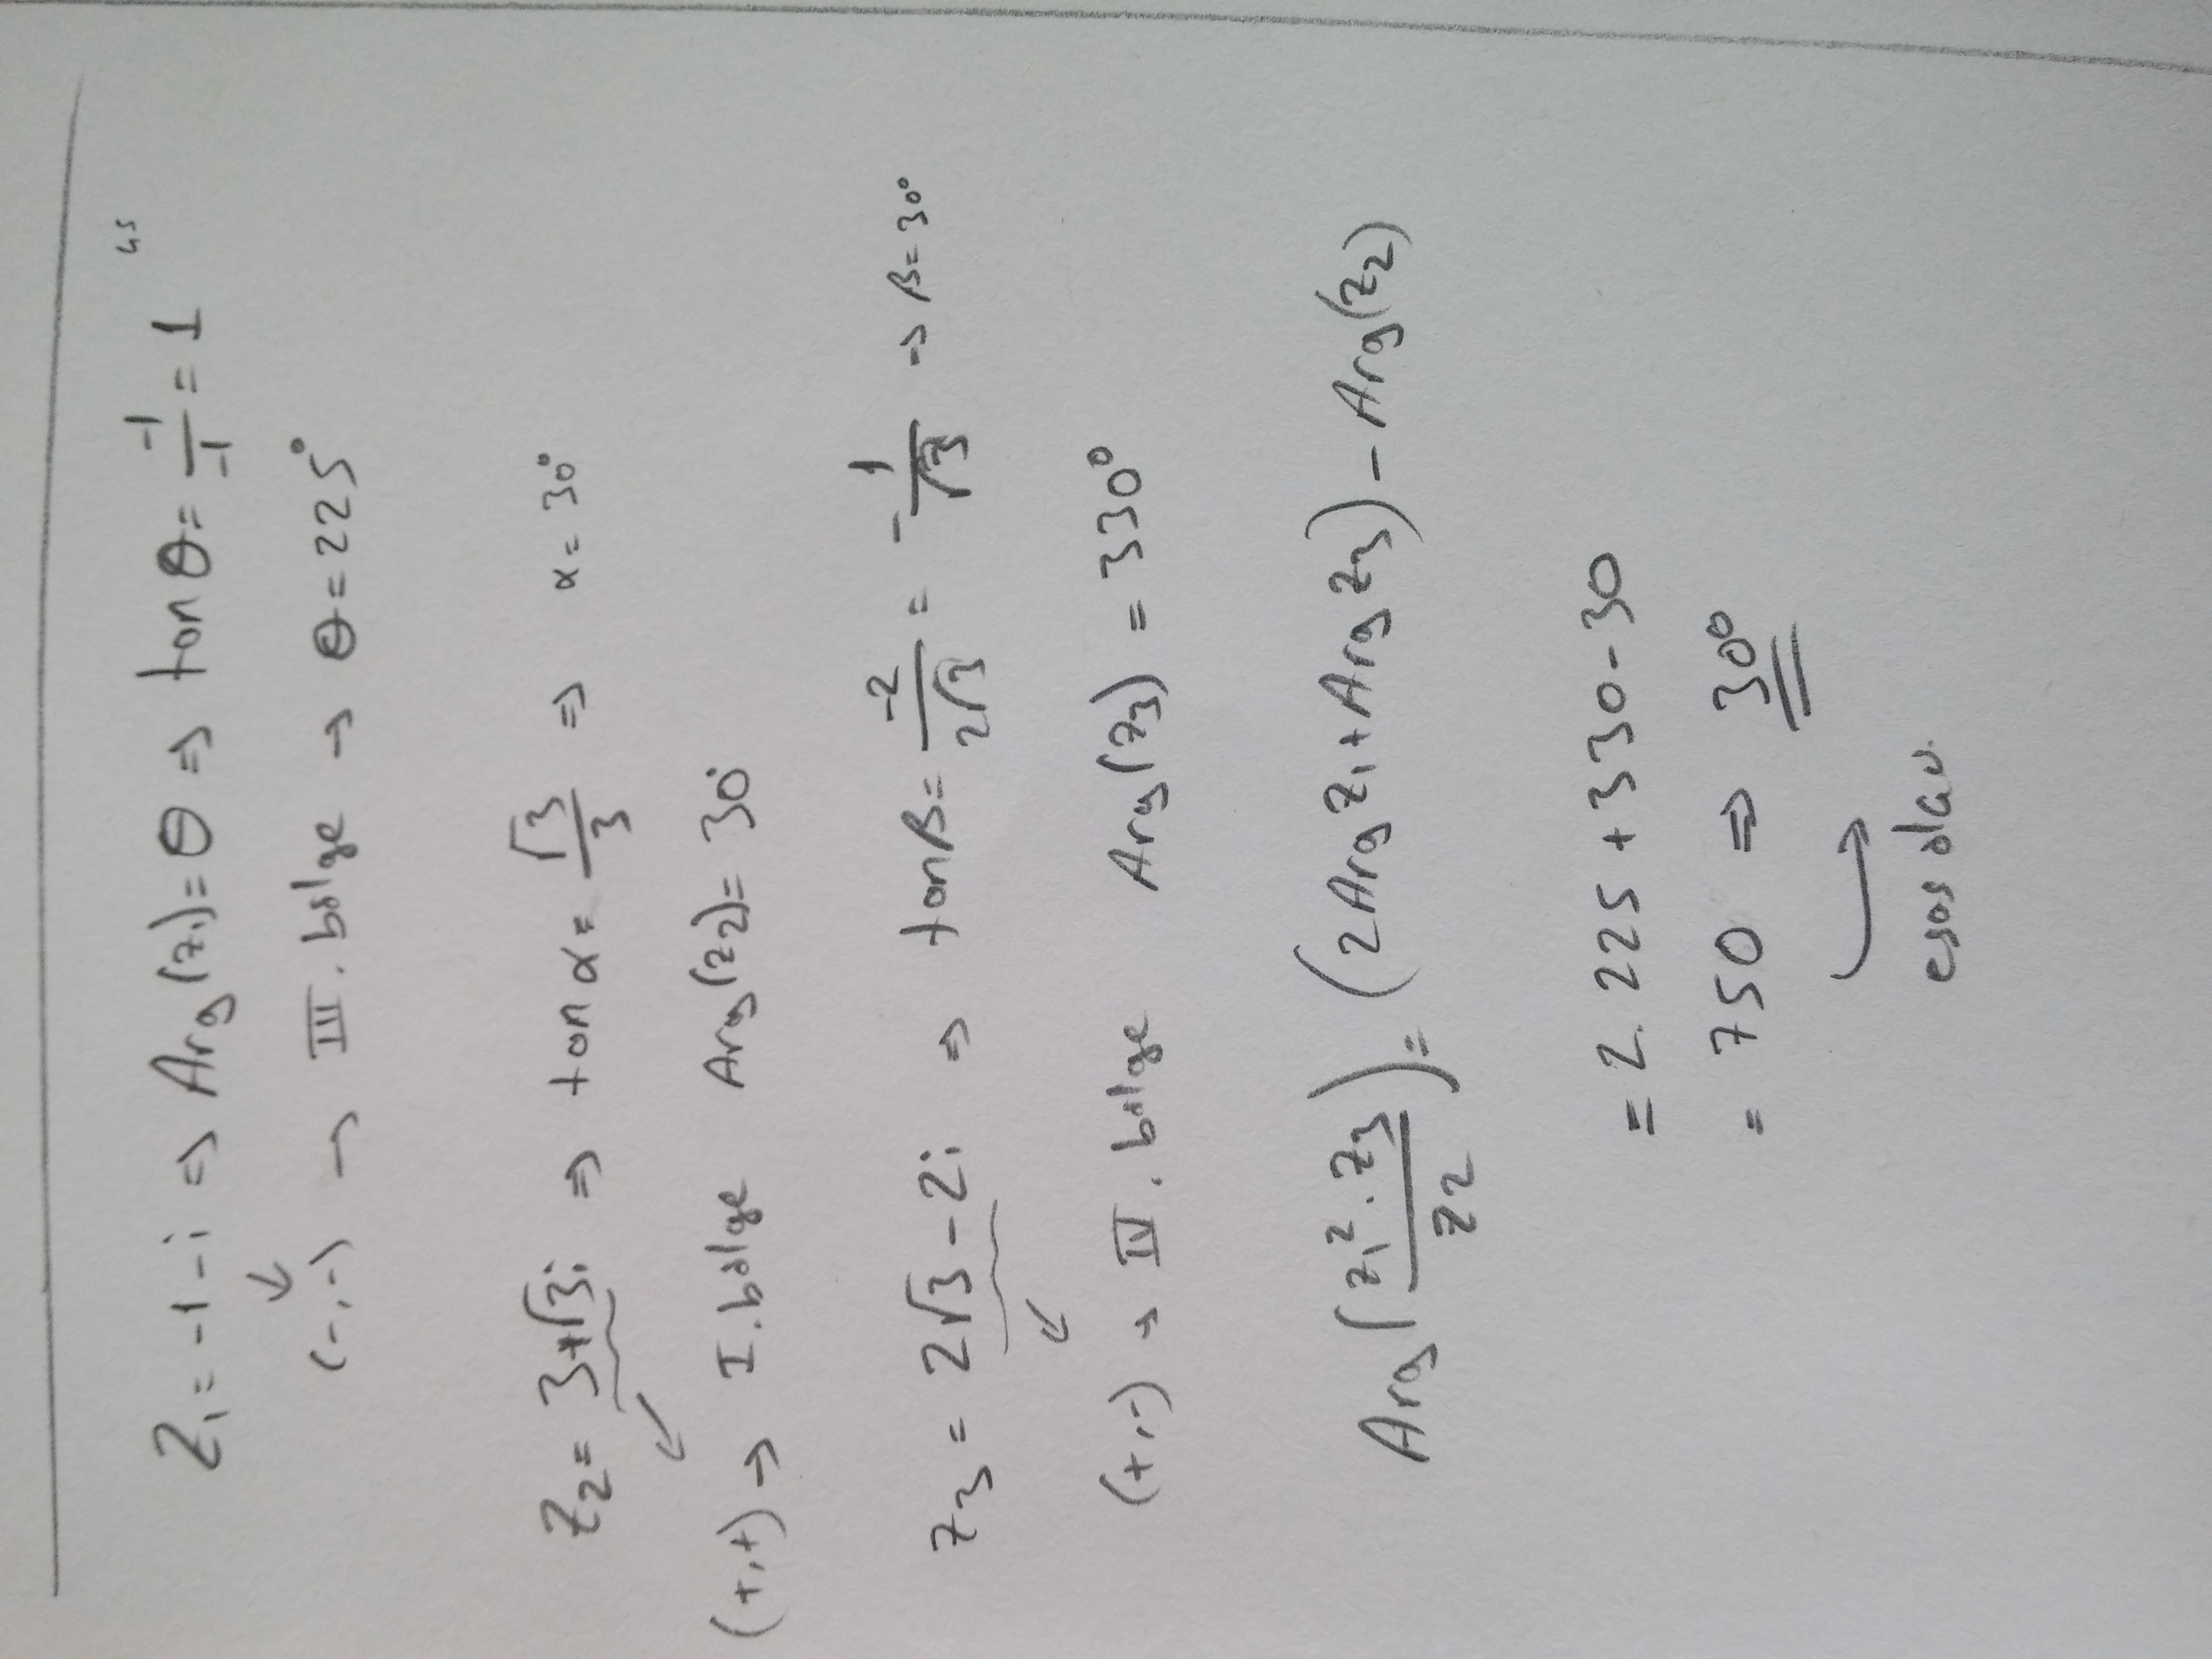 45
z₁ = -1-i ⇒ Arg(z₁) = θ ⇒ tanθ = -1/-1 = 1
(-,-) → III. bölge → θ = 225°
z₂ = 3+√3i ⇒ tanα = √3/3 ⇒ α = 30°
(+,+) → I. bölge Arg(z₂) = 30°
z₃ = 2√3-2i ⇒ tanβ = -2/2√3 = -1/√3 → β = 30°
(+,-) → IV. bölge Arg(z₃) = 330°
Arg(z₁².z₃/z₂) = (2Argz₁+Argz₃)-Arg(z₂)
= 2.225+330-30
= 750 ⇒ 30°
esas olan.